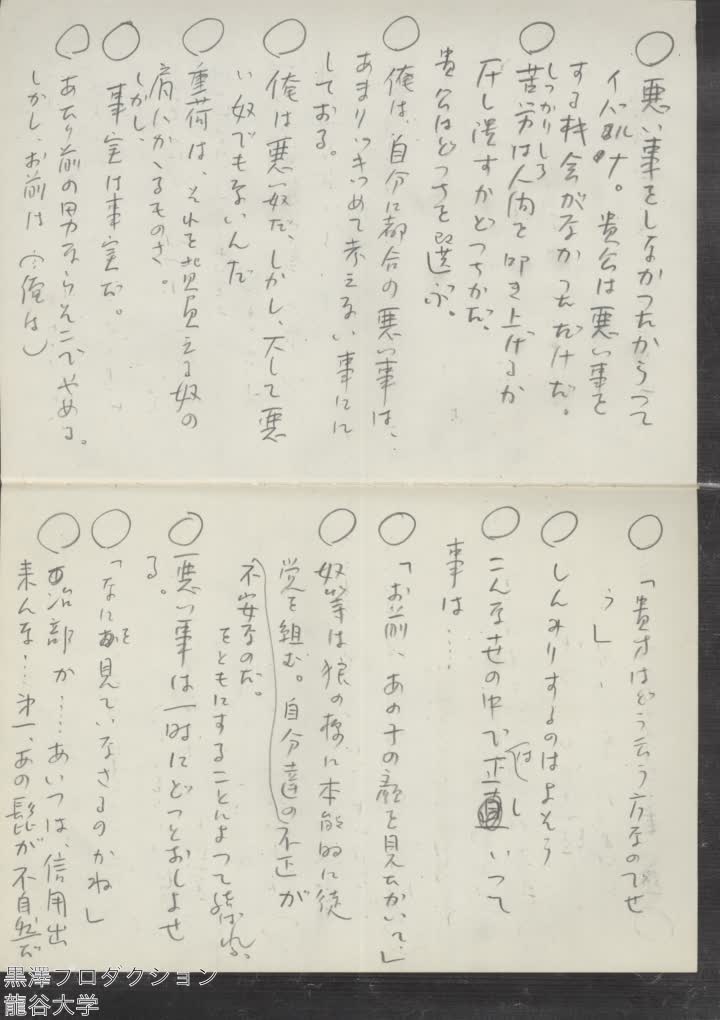 ○悪い事をしなかつたからつて
イバルナ。貴公は悪い事を
する機会がなかつただけだ。
しつかりしろ
○苦労は人間を叩き上げるか
圧し潰すかどつちかだ、
貴公はどつちを選ぶ。
○俺は、自分に都合の悪い事は、
あまりつきつめて考えない事にに
しておる。
○俺は悪い奴だ、しかし、大して悪
い奴でもないんだ
○重荷は、それを背負える奴の
肩にかゝるものさ。
しかし、
○事実は事実だ。
○あたり前の男ならそこでやめる。
しかし、お前は(俺は)
○「貴方はどう云う方なのでせ
う」
○しんみりするのはよそう
○こんな世の中で正直はしいつて
事は….
○「お前、あの子の顔を見たかいて、」
○奴等は狼の様に本能的に徒
党を組む。自分達の不正が
不安なのだ。
をともにすることによつて結ばれる、
○悪い事は一時にどつとおしよせ
る。
○「なにを見ていなさるのかね」
○治部か….あいつは、信用出
来んな….第一、あの髭が不自然だ
黒澤プロダクション
龍谷大学